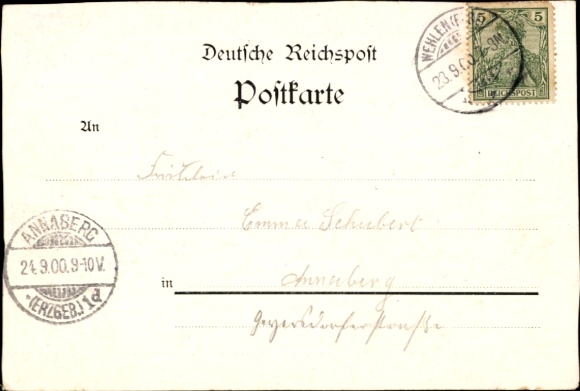 Deutsche Reichspost
Postkarte
WEHLEN
23.9.00
5 5
REICHSPOST
An
Fräulein
Emma Schubert
in Annaberg
Geyersdorferstraße
ANNABERG
24.9.00.9-10V.
*(ERZGEB.)1d